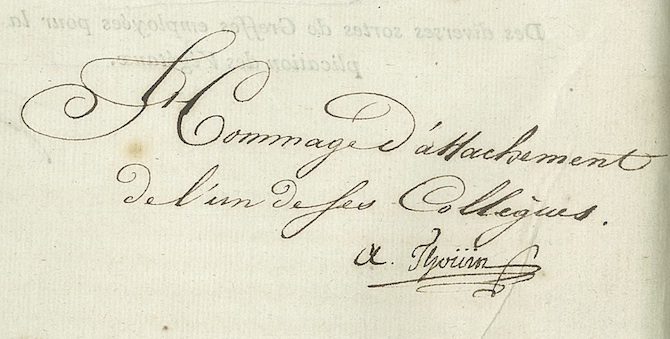 Des diverses sortes de Greffes employées pour la
plication des Végétaux.
Hommage d'attachement
de l'un de ses Collègues.
A. Thoüin